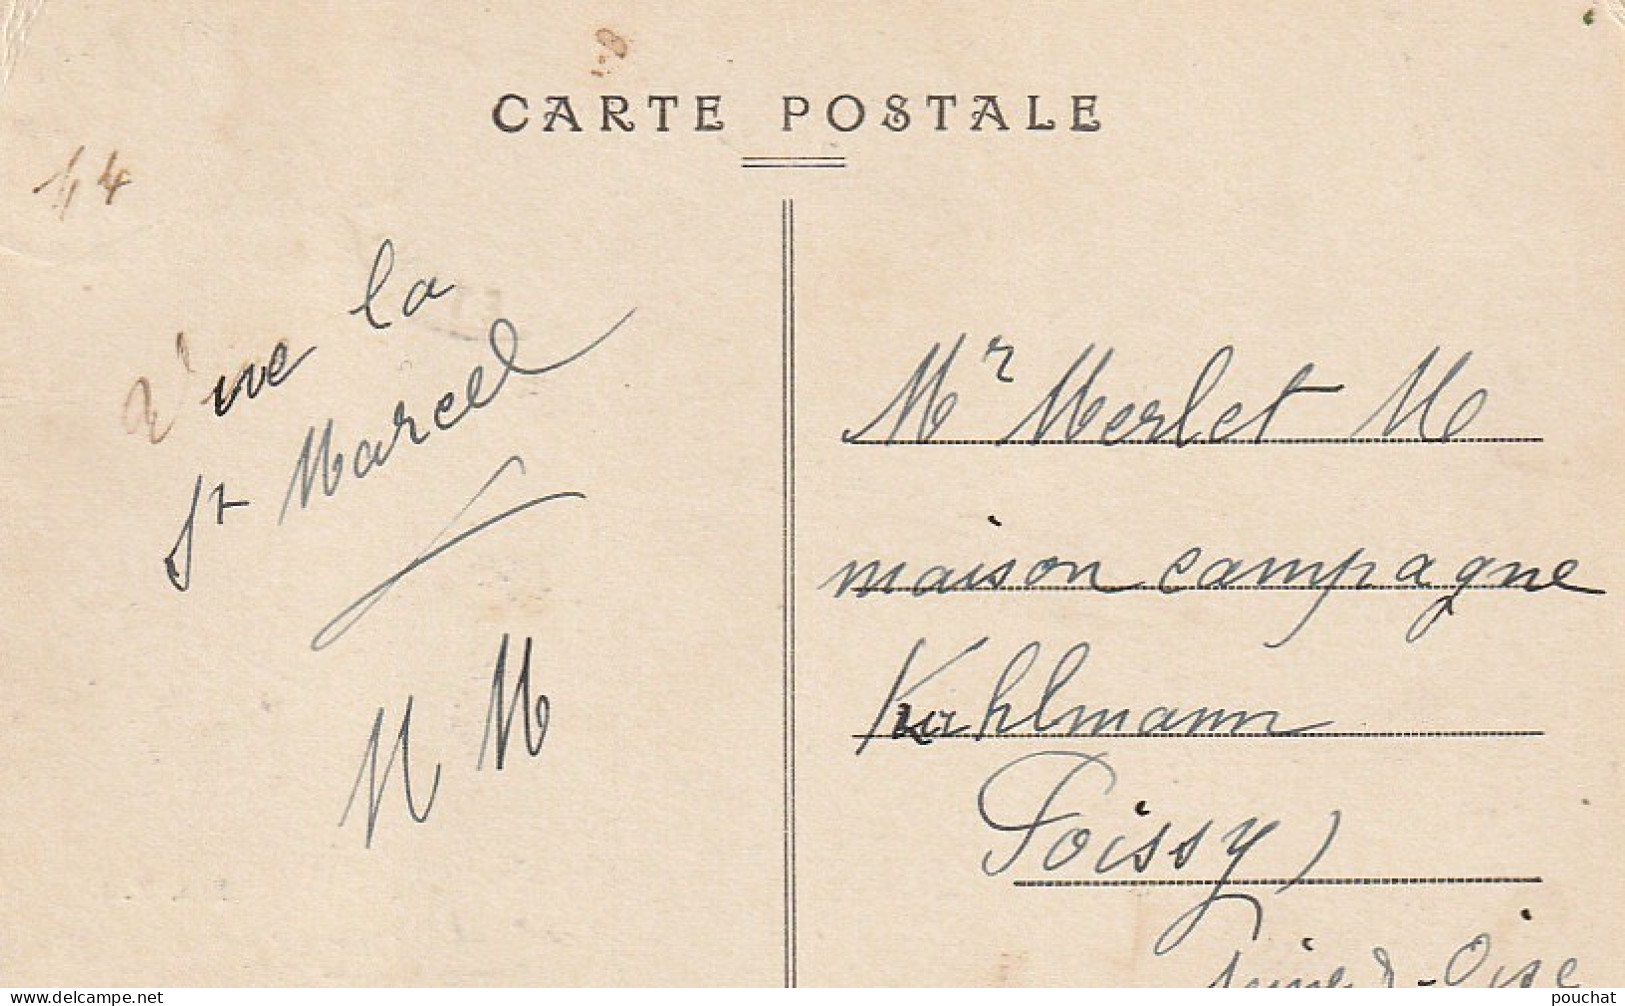 CARTE POSTALE
44
Vive la
St Marcel
M M
Mr Merlet M
maison campagne
Kuhlmann
Poissy
Seine & -Oise
delcampe.net
pouchat